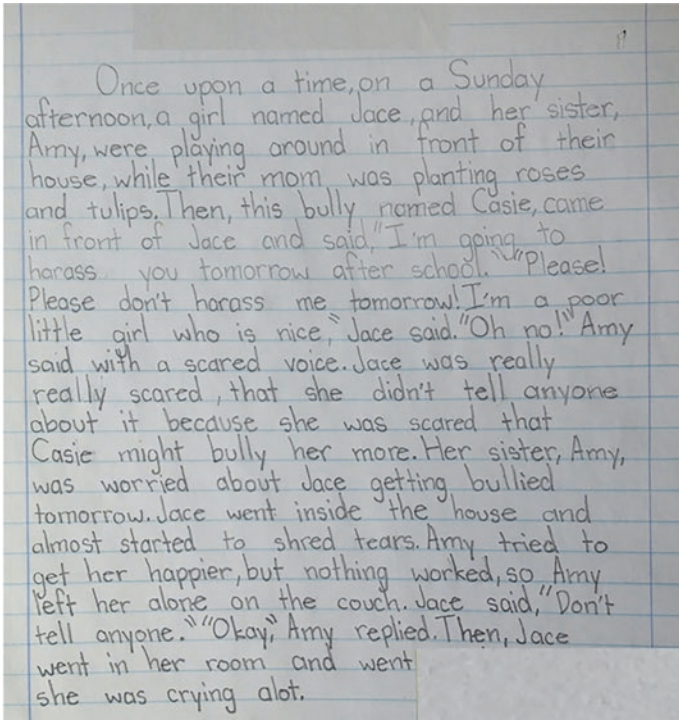 Once upon a time, on a Sunday
afternoon, a girl named Jace, and her sister,
Amy, were playing around in front of their
house, while their mom was planting roses
and tulips. Then, this bully named Casie, came
in front of Jace and said, "I'm going to
harass you tomorrow after school." "Please!
Please don't harass me tomorrow! I'm a poor
little girl who is nice," Jace said. "Oh no!" Amy
said with a scared voice. Jace was really
really scared, that she didn't tell anyone
about it because she was scared that
Casie might bully her more. Her sister, Amy,
was worried about Jace getting bullied
tomorrow. Jace went inside the house and
almost started to shred tears. Amy tried to
get her happier, but nothing worked, so Amy
left her alone on the couch. Jace said, "Don't
tell anyone." "Okay," Amy replied. Then, Jace
went in her room and went
she was crying alot.